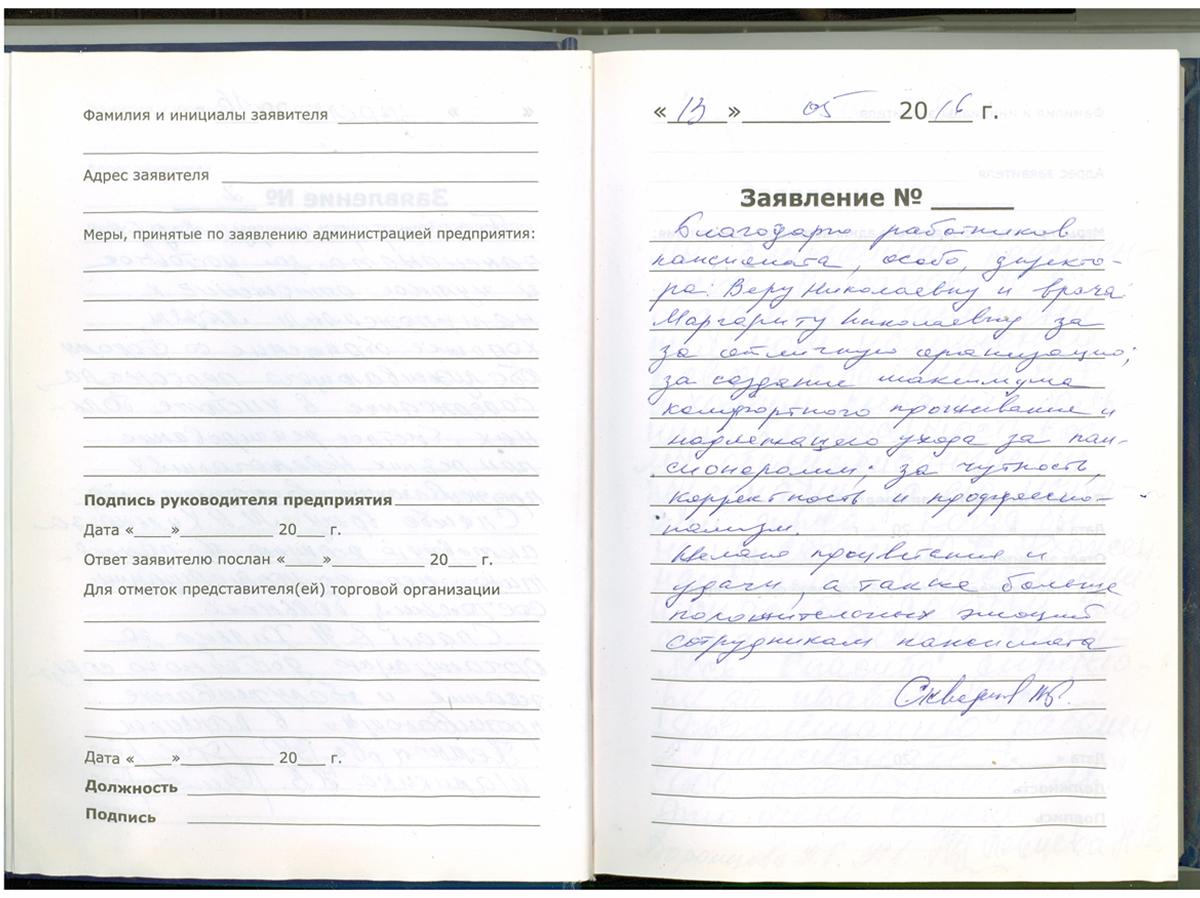 Фамилия и инициалы заявителя
Адрес заявителя
Меры, принятые по заявлению администрацией предприятия:
Подпись руководителя предприятия
Дата «____»__________ 20___ г.
Ответ заявителю послан «____»__________ 20___ г.
Для отметок представителя(ей) торговой организации
Дата «____»__________ 20___ г.
Должность
Подпись
«13» 05 2016 г.
Заявление № ______
Благодарю работников
пансионата, особо, директо-
ра: Веру Николаевну и врача
Маргариту Николаевну за
за отличную организацию;
за создание максимума
комфортного проживания и
надлежащего ухода за пан-
сионерами; за чуткость,
корректность и профессио-
нализм.
Желаю процветания и
удачи, а также больше
положительных эмоций
сотрудникам пансионата